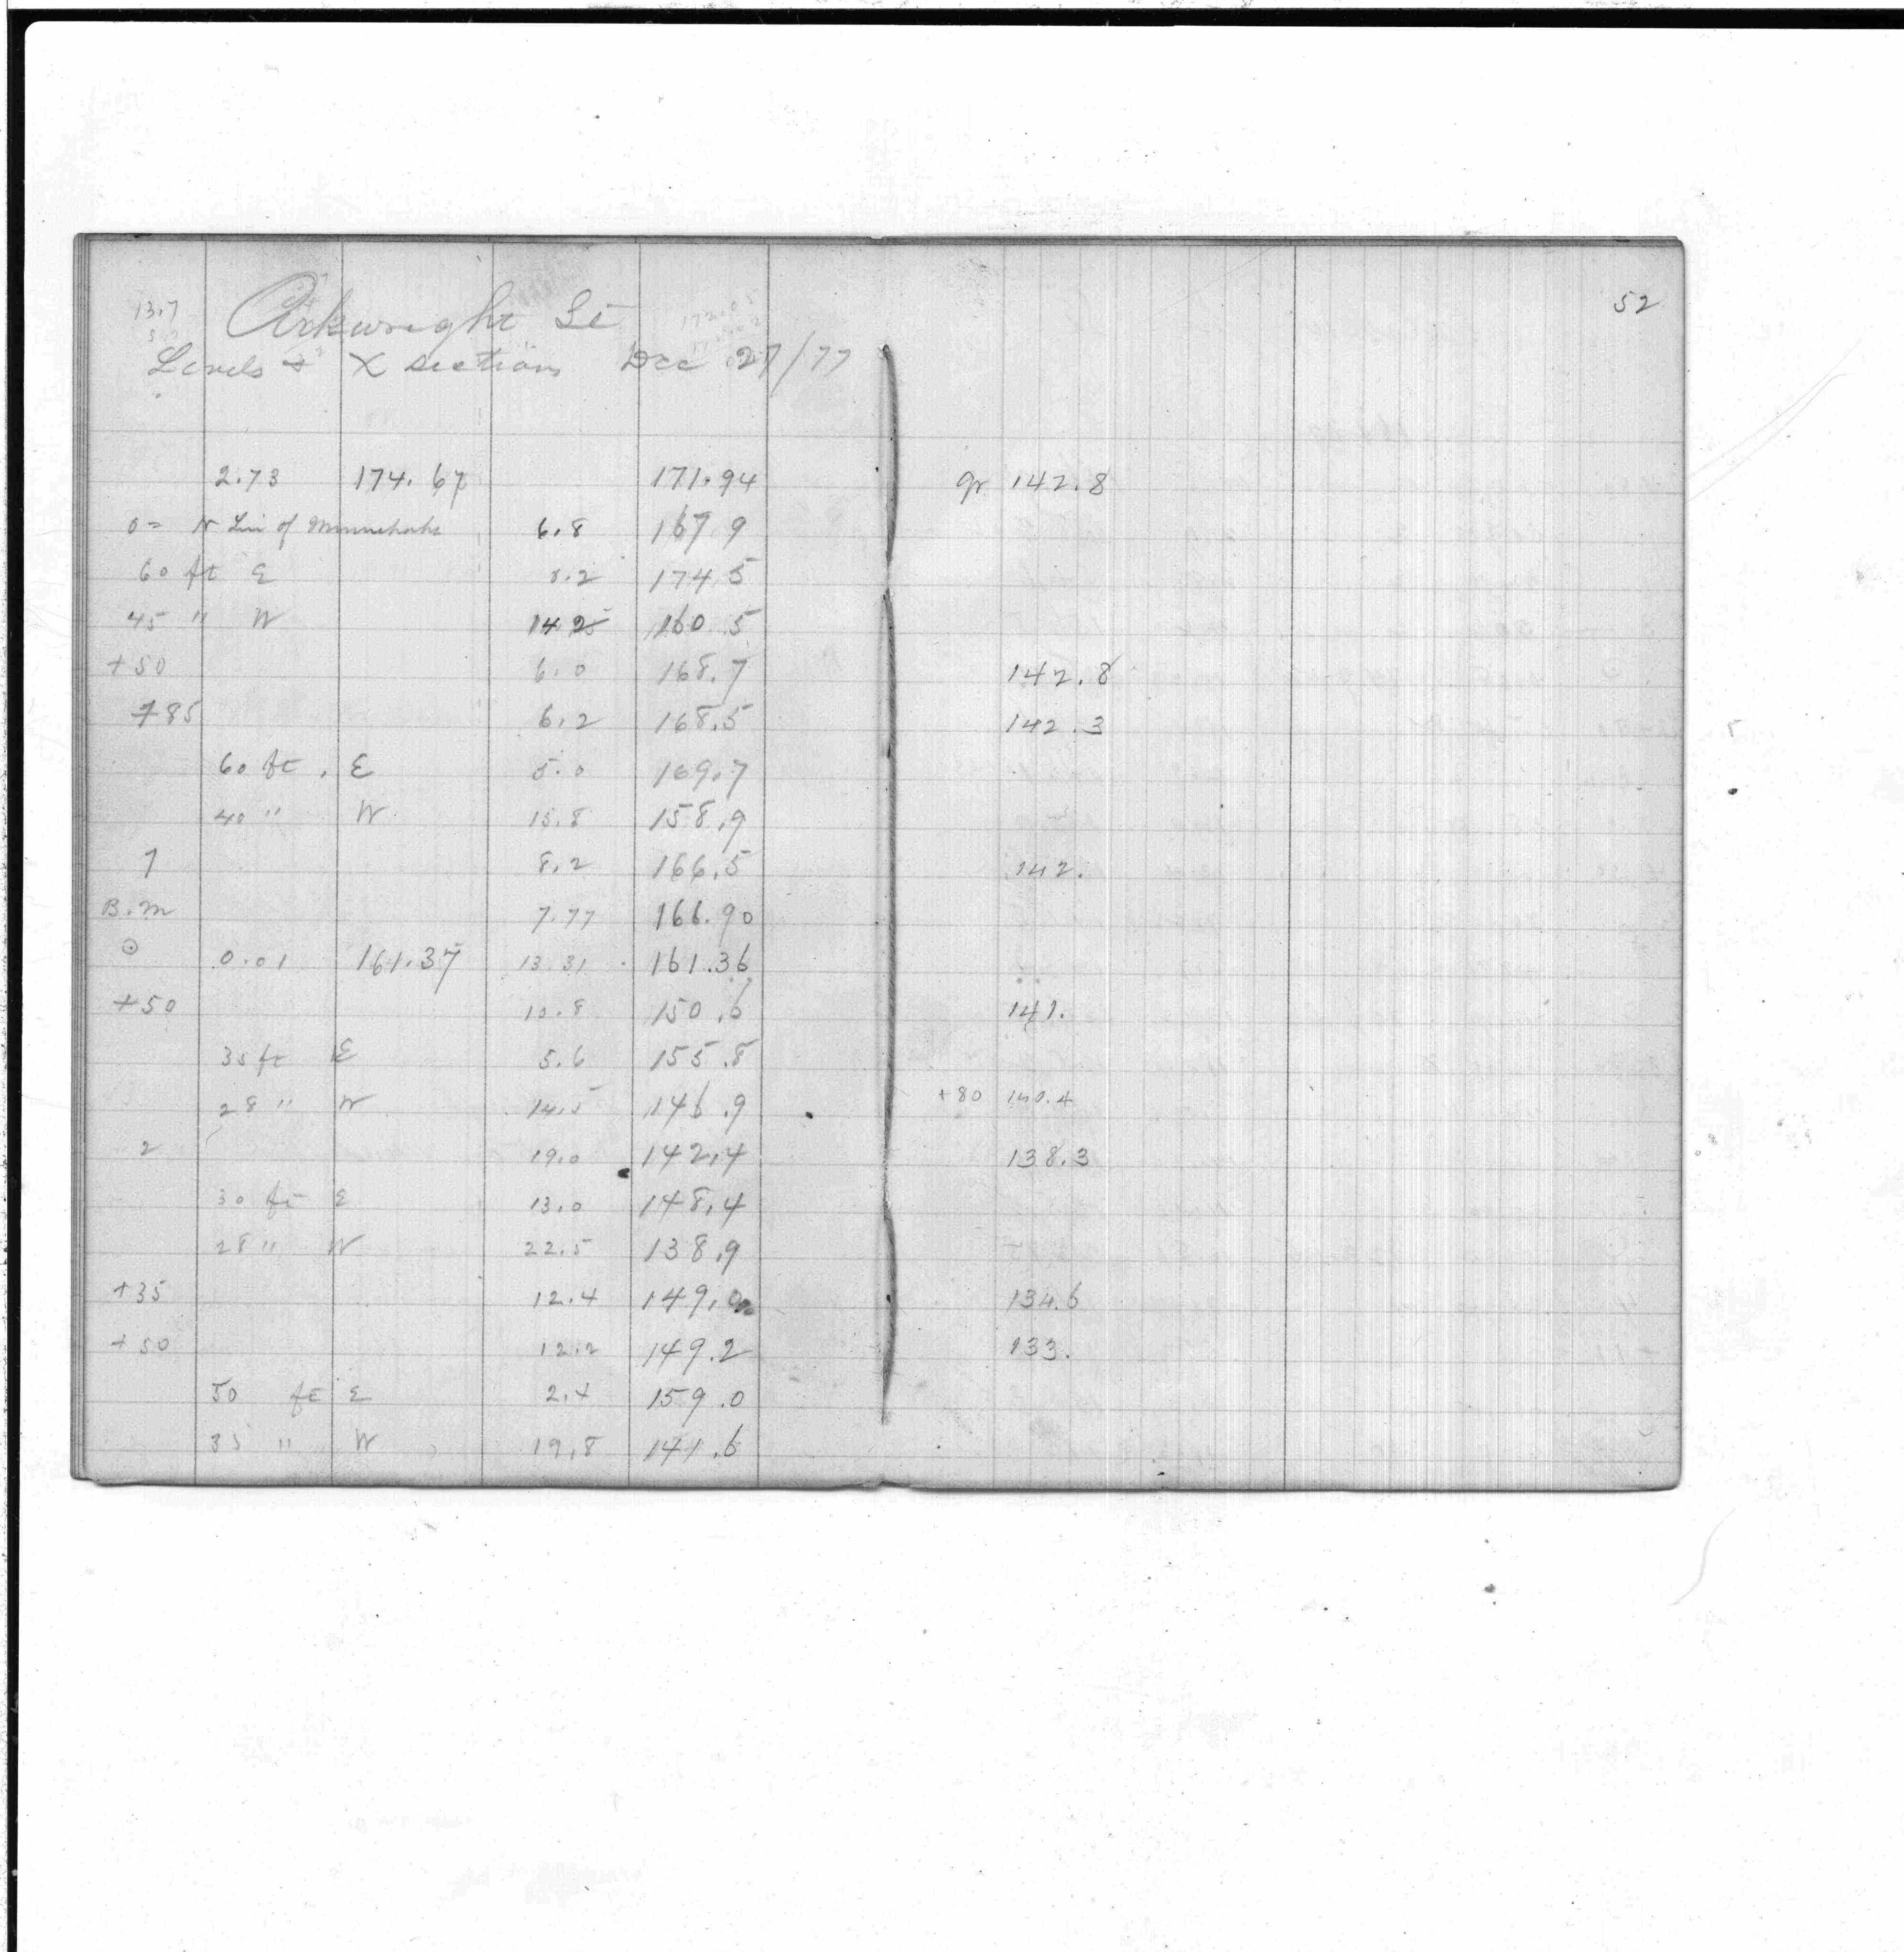 52
13.7
Arkwright St
Levels & X sections Dec 27/77
2.73 174.67 171.94 gr 142.8
0 = N Lin of Minnehaha 6.8 167.9
60 ft E 0.2 174.5
45 " W 14.2 160.5
+50 6.0 168.7 142.8
+85 6.2 168.5 142.3
60 ft. E 5.0 169.7
40 " W 15.8 158.9
1 8.2 166.5 142.
B.M 7.77 166.90
⊙ 0.01 161.37 13.31 161.36
+50 10.8 150.6 141.
35 ft E 5.6 155.8
28 " W 14.5 146.9 +80 140.4
2 19.0 142.4 138.3
30 ft E 13.0 148.4
28 " W 22.5 138.9
+35 12.4 149.0 134.6
+50 12.2 149.2 133.
50 ft E 2.4 159.0
35 " W 19.8 141.6